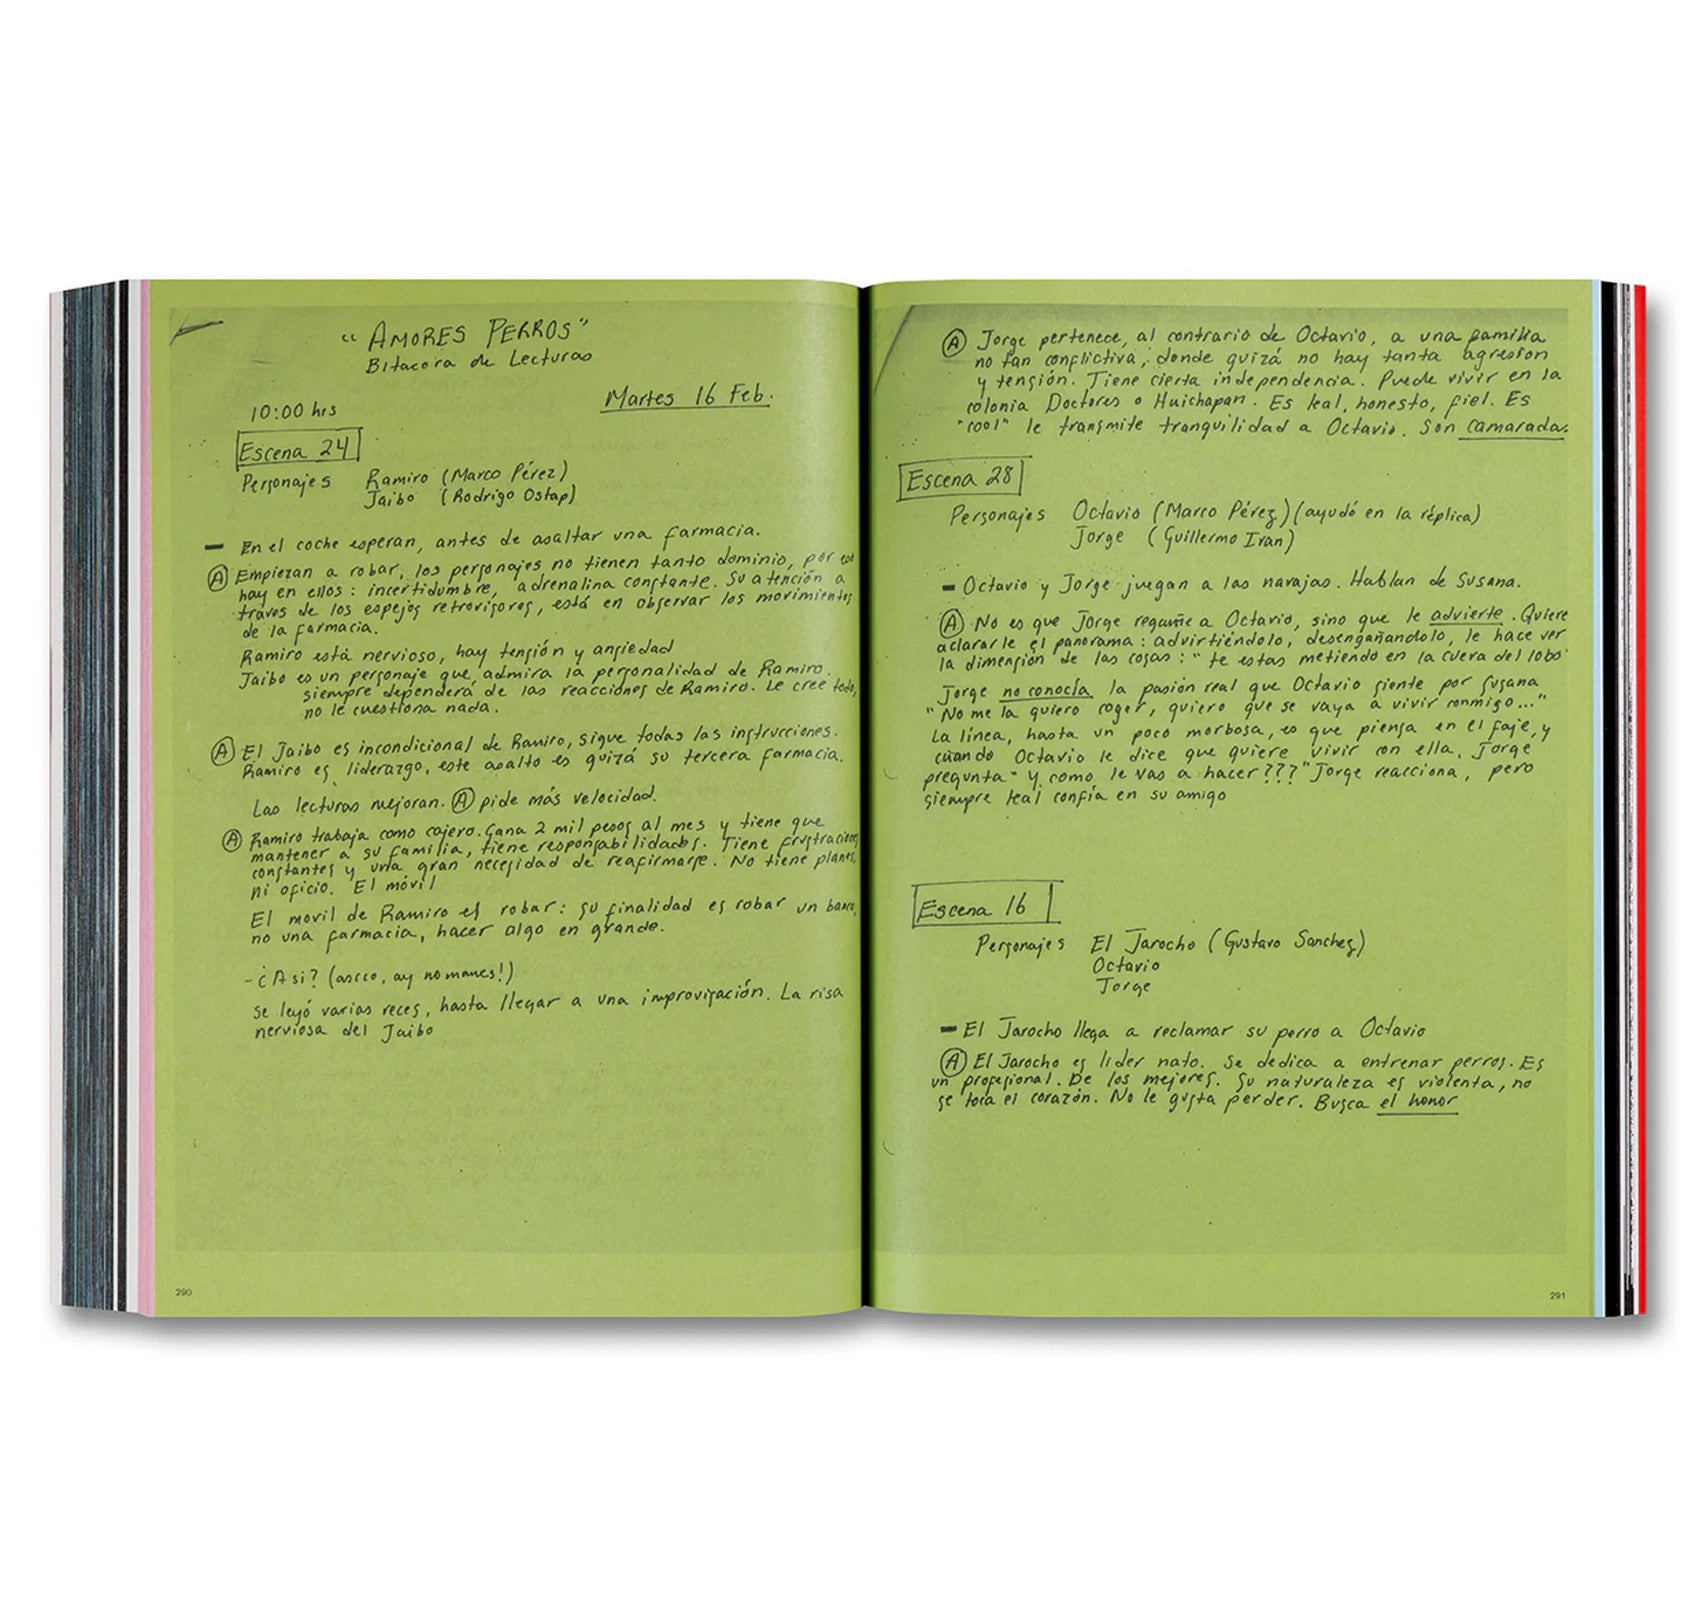 "AMORES PERROS"
Bitacora de Lecturas
Martes 16 Feb.
10:00 hrs
Escena 24
Personajes Ramiro (Marco Pérez)
Jaibo (Rodrigo Ostap)
- En el coche esperan, antes de asaltar una farmacia.
Ⓐ Empiezan a robar, los personajes no tienen tanto dominio, por eso
hay en ellos: incertidumbre, adrenalina constante. Su atención a
través de los espejos retrovisores, está en observar los movimientos
de la farmacia.
Ramiro está nervioso, hay tensión y ansiedad
Jaibo es un personaje que admira la personalidad de Ramiro.
siempre dependerá de las reacciones de Ramiro. Le cree todo,
no le cuestiona nada.
Ⓐ El Jaibo es incondicional de Ramiro, sigue todas las instrucciones.
Ramiro es liderazgo, este asalto es quizá su tercera farmacia.
Las lecturas mejoran. Ⓐ pide más velocidad.
Ⓐ Ramiro trabaja como cajero. Gana 2 mil pesos al mes y tiene que
mantener a su familia, tiene responsabilidades. Tiene frustraciones
constantes y una gran necesidad de reafirmarse. No tiene planes,
ni oficio. El móvil
El movil de Ramiro es robar: su finalidad es robar un banco,
no una farmacia, hacer algo en grande.
- ¿A si? (ascco, ay no manches!)
se leyó varias veces, hasta llegar a una improvisación. La risa
nerviosa del Jaibo
290
Ⓐ Jorge pertenece, al contrario de Octavio, a una familia
no tan conflictiva, donde quizá no hay tanta agresion
y tensión. Tiene cierta independencia. Puede vivir en la
colonia Doctores o Huichapan. Es leal, honesto, fiel. Es
"cool" le transmite tranquilidad a Octavio. Son camaradas.
Escena 28
Personajes Octavio (Marco Pérez) (ayudó en la réplica)
Jorge (Guillermo Ivan)
- Octavio y Jorge juegan a las navajas. Hablan de Susana.
Ⓐ No es que Jorge regañe a Octavio, sino que le advierte. Quiere
aclararle el panorama: advirtiéndolo, desengañandolo, le hace ver
la dimensión de las cosas: "te estas metiendo en la cueva del lobo"
Jorge no conocía la pasión real que Octavio siente por Susana
"No me la quiero coger, quiero que se vaya a vivir conmigo..."
La línea, hasta un poco morbosa, es que piensa en el faje, y
cuando Octavio le dice que quiere vivir con ella, Jorge
pregunta "Y como le vas a hacer???" Jorge reacciona, pero
siempre leal confía en su amigo
Escena 16
Personajes El Jarocho (Gustavo Sanchez)
Octavio
Jorge
- El Jarocho llega a reclamar su perro a Octavio
Ⓐ El Jarocho es lider nato. Se dedica a entrenar perros. Es
un profesional. De los mejores. Su naturaleza es violenta, no
se toca el corazón. No le gusta perder. Busca el honor
291